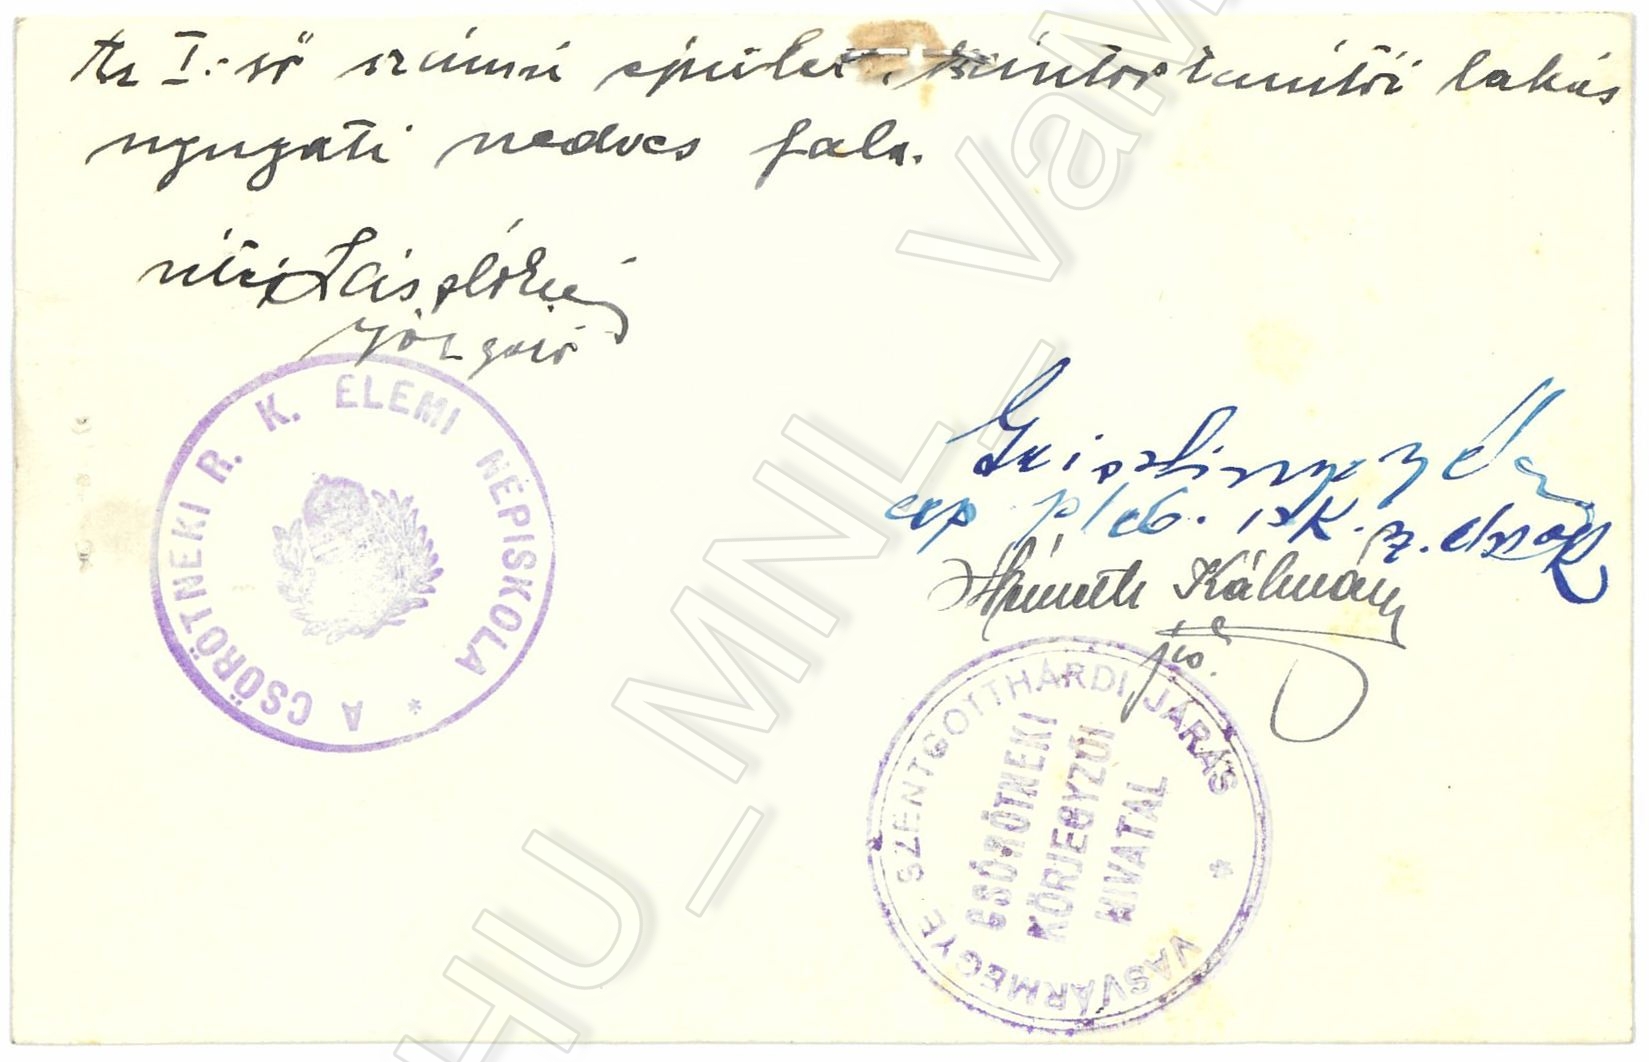 Az I.-ső számú épület, kántortanítói lakás
nyugati nedves fala.
vitéz Lászlóházy
A CSÖRÖTNEKI R. K. ELEMI NÉPISKOLA *
esp. pleb. isk. sz. elnök
Németh Kálmán
VASVÁRMEGYE SZENTGOTTHÁRDI JÁRÁS *
CSÖRÖTNEKI
KÖRJEGYZŐI
HIVATAL
HU_MNL_VaM